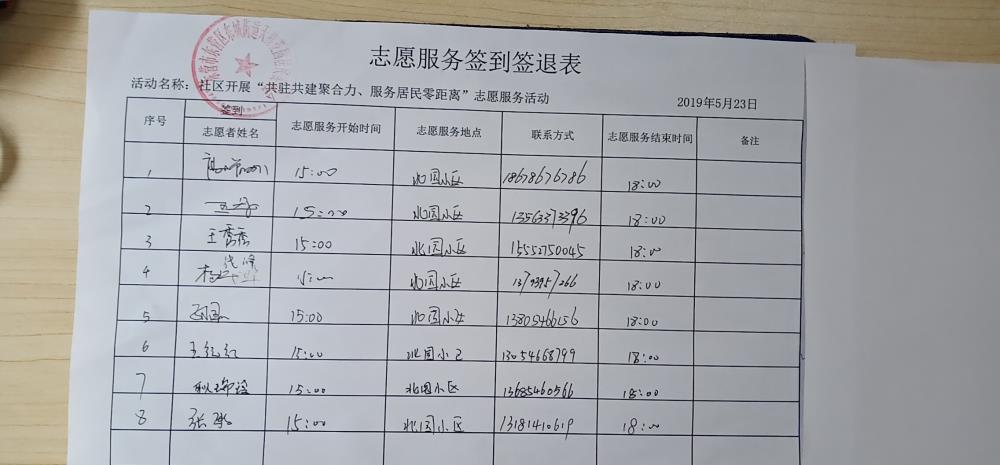 志愿服务签到签退表
活动名称：社区开展“共驻共建聚合力、服务居民零距离”志愿服务活动 2019年5月23日
序号 签到 志愿者姓名 志愿服务开始时间 志愿服务地点 联系方式 志愿服务结束时间 备注
1 15:00 北园小区 18678676786 18:00
2 15:00 北园小区 13563373396 18:00
3 王秀秀 15:00 北园小区 15552750045 18:00
4 15:00 北园小区 18:00
5 15:00 北园小区 13805466156 18:00
6 王红红 15:00 北园小区 13054668799 18:00
7 15:00 北园小区 13685460566 18:00
8 张 15:00 北园小区 13181410619 18:00